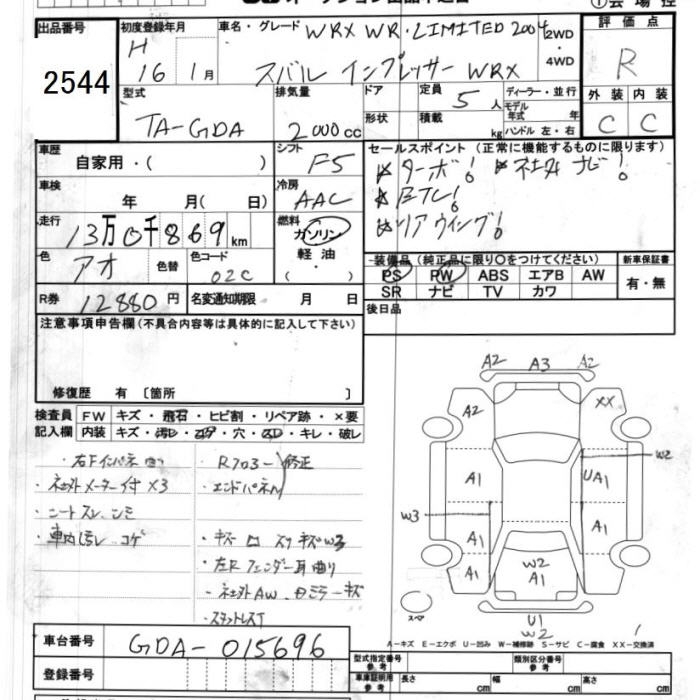 出品番号
2544
初度登録年月
H
16 1月
車名・グレード WRX WR・LIMITED 2004
スバル インプレッサー WRX
2WD
・
4WD
評価点
R
外装 内装
C C
型式
TA-GDA
排気量
2000cc
ドア
形状
定員 5人
積載 kg
ディーラー・並行
モデル年式 年式
ハンドル 左・右
車歴
自家用・( )
シフト
F5
車検
年 月(日)
冷房
AAC
走行
13万0千869km
燃料
ガソリン
軽油・
( )
色
アオ
色替
色コード
02C
R券 12880円
名変通知期限 月 日
セールスポイント(正常に機能するものに限ります)
ターボ! 社外ナビ!
ETC!
リアウイング!
装備品(純正品に限り○をつけてください)
PS PW ABS エアB AW
SR ナビ TV カワ
新車保証書
有・無
後日品
注意事項申告欄(不具合内容等は具体的に記入して下さい)
修復歴 有 〔箇所 〕
検査員
記入欄
FW キズ・飛石・ヒビ割・リペア跡・×要
内装 キズ・汚レ・コゲ・穴・スレ・キレ・破レ
・右Fインパネ凹
・社外メーター付×3
・シートスレ、シミ
・車内汚レ、コゲ
・エンドパネル
修正
・左Rフェンダー耳曲り
・社外AW
・スタットレスT
A2 A3 A2
A2 XX
W2
A1 UA1
W3
A1 A1
A1 W2 A1
A1
スペア
U1
W2
A-キズ E-エクボ U-凹み W-補修跡 S-サビ C-腐食 XX-交換済
車台番号 GDA-015696
登録番号
型式指定番号
参考
類別区分番号
参考
車庫証明用
参考
長さ cm 幅 cm 高さ cm